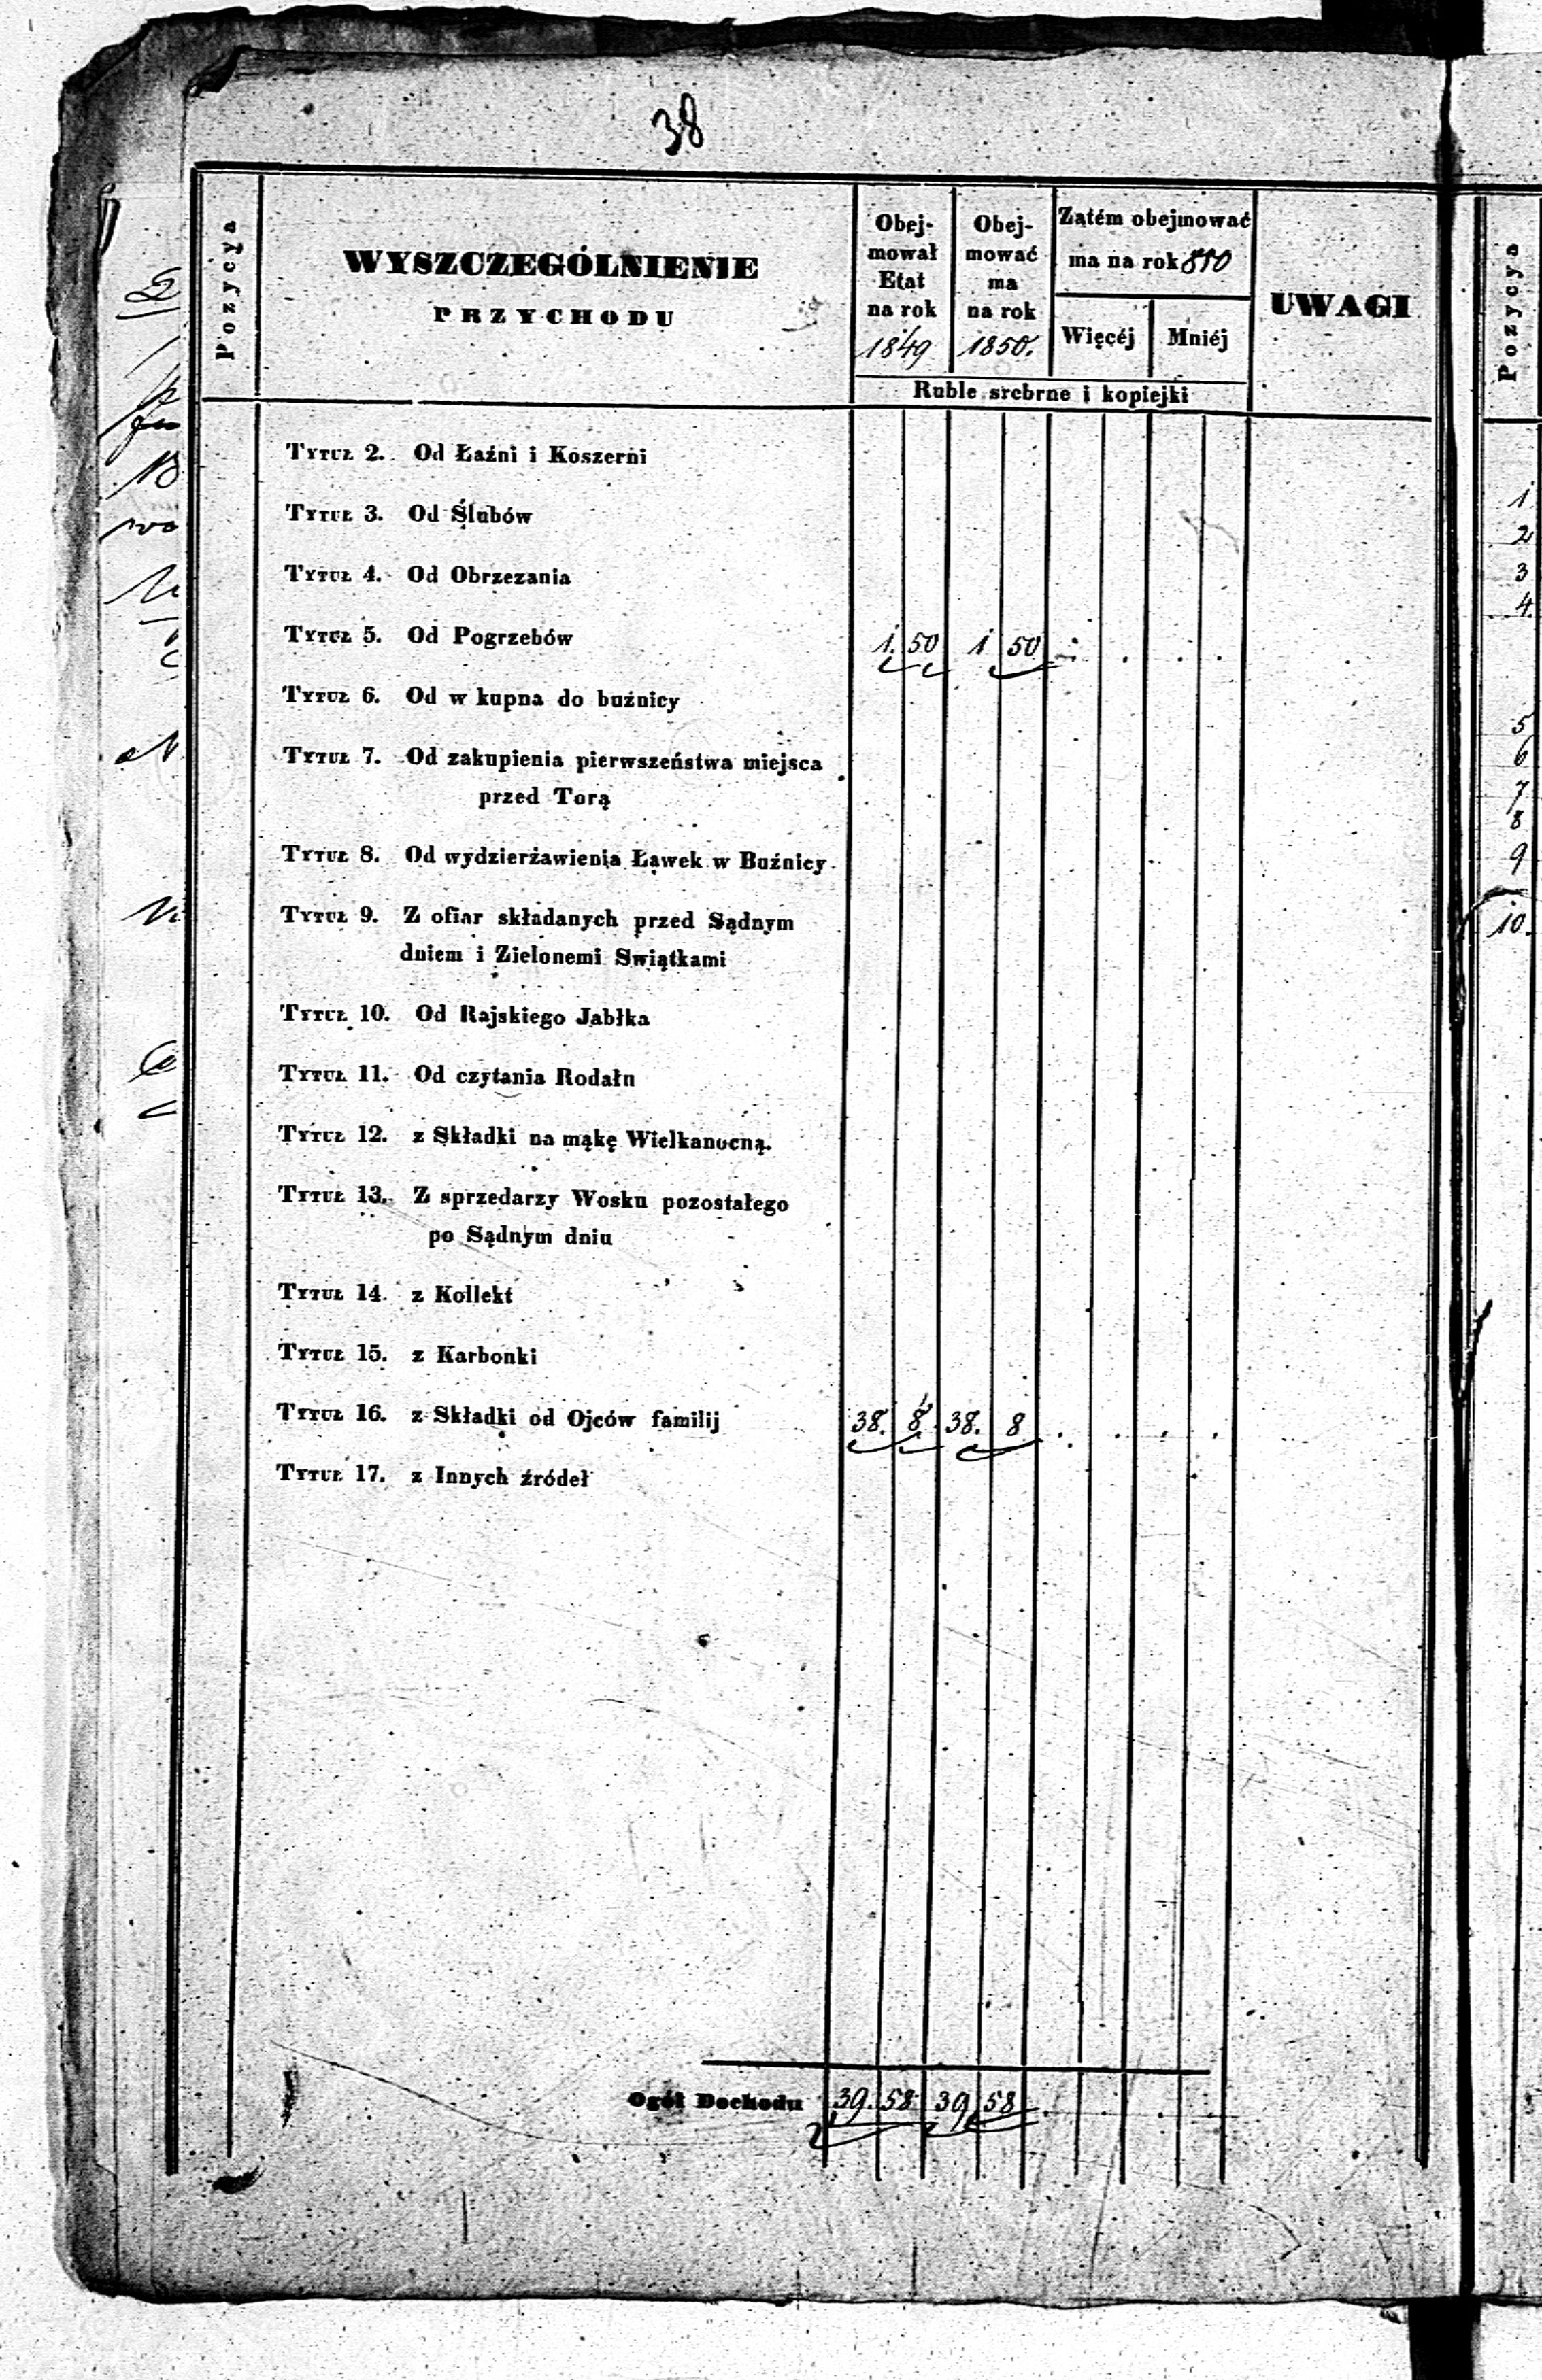 38
Pozycya
WYSZCZEGÓLNIENIE
PRZYCHODU
Obej-
mował
Etat
na rok
1849
Obej-
mować
ma
na rok
1850.
Zatém obejmować
ma na rok 850
Więcéj Mniéj
Ruble srebrne i kopiejki
UWAGI
Tytuł 2. Od Łaźni i Koszerni
Tytuł 3. Od Ślubów
Tytuł 4. Od Obrzezania
Tytuł 5. Od Pogrzebów 1. 50 1 50
Tytuł 6. Od w kupna do buźnicy
Tytuł 7. Od zakupienia pierwszeństwa miejsca
przed Torą
Tytuł 8. Od wydzierżawienia Ławek w Buźnicy
Tytuł 9. Z ofiar składanych przed Sądnym
dniem i Zielonemi Swiątkami
Tytuł 10. Od Rajskiego Jabłka
Tytuł 11. Od czytania Rodału
Tytuł 12. z Składki na mąkę Wielkanocną.
Tytuł 13. Z sprzedarzy Wosku pozostałego
po Sądnym dniu
Tytuł 14. z Kollekt
Tytuł 15. z Karbonki
Tytuł 16. z Składki od Ojców familij 38. 8. 38. 8
Tytuł 17. z Innych źródeł
Ogół Dochodu 39. 58 39 58
Pozycya
1
2
3
4.
5
6
7
8
9
10.